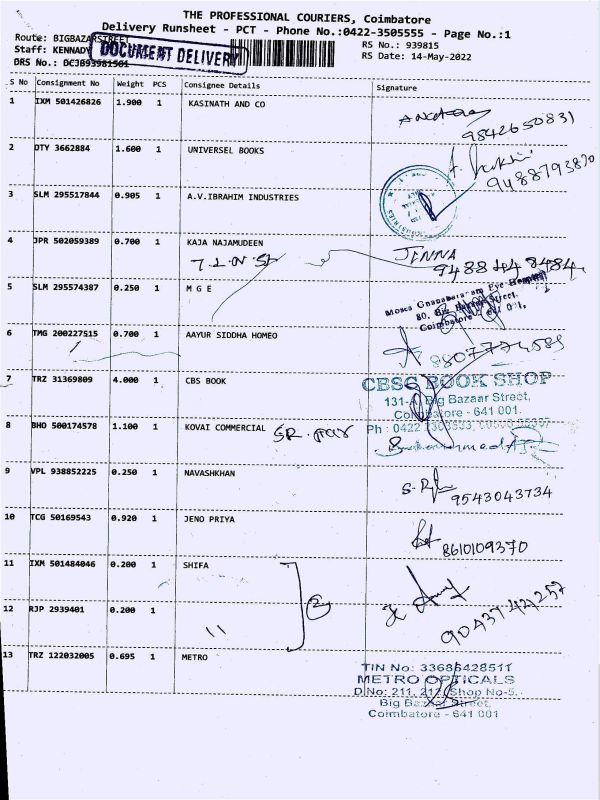 THE PROFESSIONAL COURIERS, Coimbatore
Delivery Runsheet - PCT - Phone No.:0422-3505555 - Page No.:1
Route: BIGBAZARSTREET RS No.: 939815
Staff: KENNADY DOCUMENT DELIVERY RS Date: 14-May-2022
DRS No.:
S No Consignment No Weight PCS Consignee Details Signature
1 IXM 501426826 1.900 1 KASINATH AND CO
9842650831
2 OTY 3662884 1.600 1 UNIVERSEL BOOKS
9488793870
3 SLM 295517844 0.905 1 A.V.IBRAHIM INDUSTRIES
4 JPR 502059389 0.700 1 KAJA NAJAMUDEEN JENNA
5 SLM 295574387 0.250 1 M G E
80, Big Bazaar Street,
Coimbatore 641 001.
6 TMG 200227515 0.700 1 AAYUR SIDDHA HOMEO
7 TRZ 31369809 4.000 1 CBS BOOK CBSG BOOK SHOP
131-A, Big Bazaar Street,
Coimbatore - 641 001.
8 BHO 500174578 1.100 1 KOVAI COMMERCIAL Ph : 0422
9 VPL 938852225 0.250 1 NAVASHKHAN
9543043734
10 TCG 50169543 0.920 1 JENO PRIYA
8610109370
11 IXM 501484046 0.200 1 SHIFA
12 RJP 2939401 0.200 1 " 2
13 TRZ 122032005 0.695 1 METRO
TIN No: 33686428511
METRO OPTICALS
D.No: 211, 212, Shop No-5,
Big Bazaar Street,
Coimbatore - 641 001